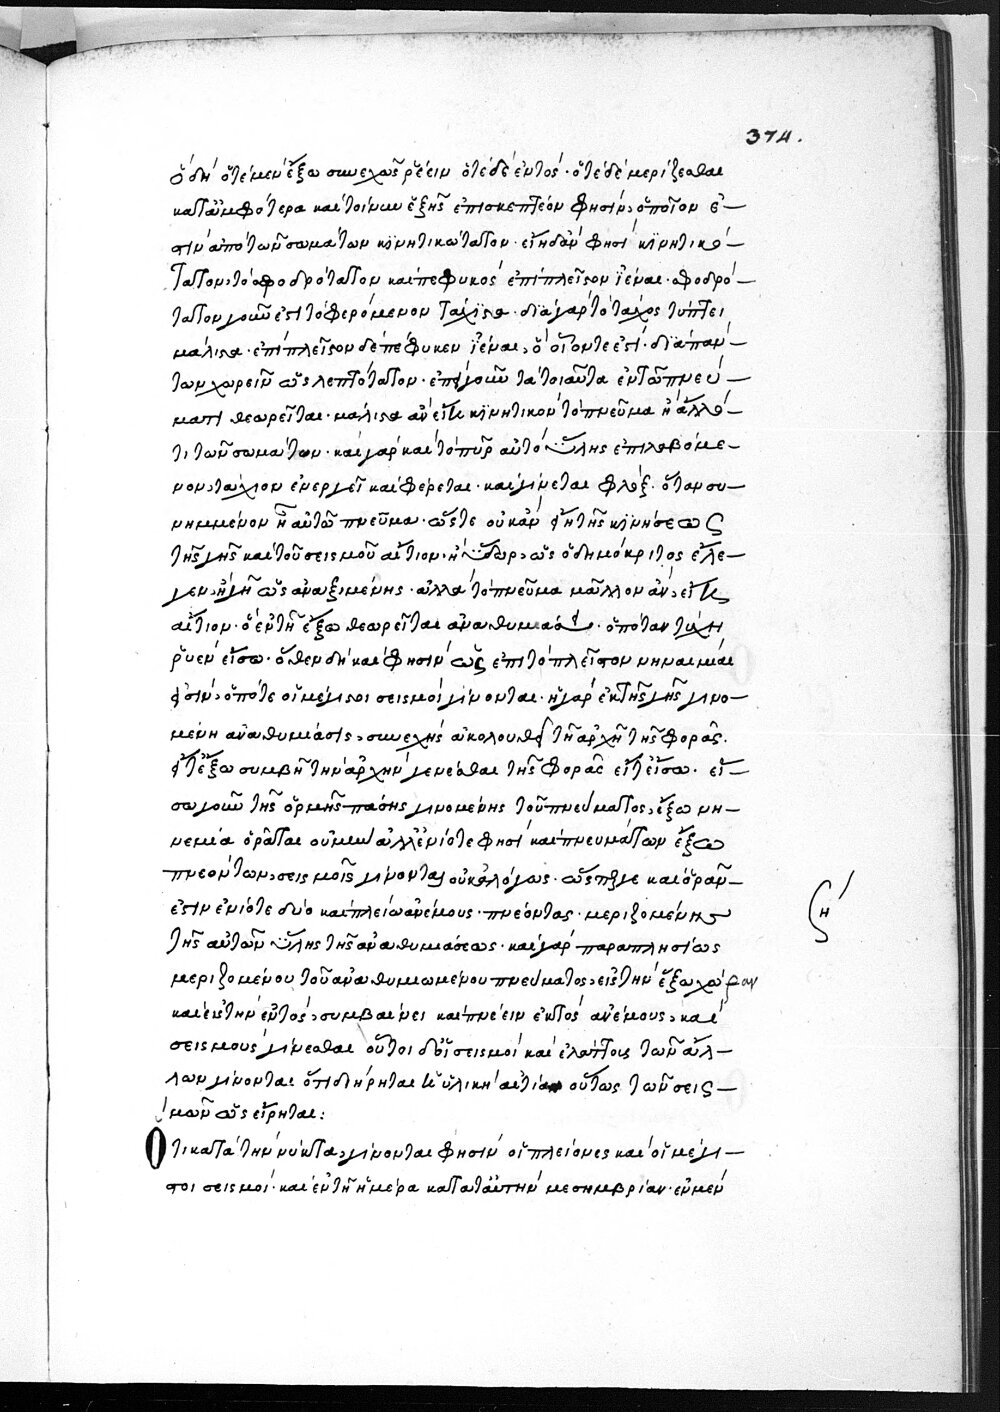 374.
ὁ δὴ ὁτὲ μὲν ἔξω συνεχῶς ῥέειν ὁτὲ δὲ ἐντός· ὁτὲ δὲ μερίζεσθαι
κατὰ ἀμφότερα καὶ τοίνυν ἑξῆς ἐπισκεπτέον φησὶν, ὁποῖον ἐ–
στὶν ἀπὸ τῶν σωμάτων κινητικώτατον· εἴη δἂν φησὶ κινητικώ–
τατον, τὸ σφοδρότατον καὶ πεφυκὸς ἐπιπλεῖστον ἰέναι· σφοδρό–
τατον γοῦν ἐστὶ τὸ φερόμενον τάχιστα· διὰ γὰρ τὸ τάχος τύπτει
μάλιστα· ἐπιπλεῖστον δὲ πέφυκεν ἰέναι, ὃ οἷόντε ἐστὶ· διὰ πάν–
των χωρεῖν ὡς λεπτότατον· ἐπεὶ γοῦν τὰ τοιαῦτα ἐν τῶ πνεύ–
ματι θεωρεῖται· μάλιστα ἂν εἴη κινητικὸν τὸ πνεῦμα ἢ ἄλλό–
τι τῶν σωμάτων· καὶ γὰρ καὶ τὸ πῦρ αὐτὸ ὕλης ἐπιλαβόμε–
νον, τάχιον ἐνεργεῖ καὶ φέρεται· καὶ γίνεται φλόξ· ὅταν συ–
νημμένον ἦ αὐτῶ πνεῦμα· ὥστε οὐκ ἂν εἴη τῆς κινήσεως
τῆς γῆς καὶ τοῦ σεισμοῦ αἴτιον· ἢ ὕδωρ, ὡς ὁ δημόκριτος ἔλε–
γεν, ἢ γῆ ὡς ἀναξιμένης· ἀλλὰ τὸ πνεῦμα μᾶλλον ἂν, εἴη
αἴτιον· ὃ ἐν τῆ ἔξω θεωρεῖται ἀναθυμιάσει· ὁπόταν τύχη
ῥυὲν εἴσω· ὅθεν δὴ καὶ φησὶν ὡς ἐπιτόπλεῖστον νηνεμίαι
εἰσὶν, ὁπότε οἱ μέγιστοι σεισμοὶ γίνονται· ἡ γὰρ ἐκ τῆς γῆς γινο–
μένη ἀναθυμίασις, συνεχὴς ἀκολουθεῖ τῆ ἀρχῆ τῆς φορᾶς.
εἴτ ἔξω συμβῆ τὴν ἀρχὴν γενέσθαι τῆς φορᾶς εἴτ εἴσω· εἴ–
σω γοῦν τῆς ὁρμῆς πάσης γινομένης τοῦ πνεύματος, ἔξω νη–
νεμία ὁρᾶται οὐ μὴν ἀλλ ἐνίοτε φησὶ καὶ πνευμάτων ἔξω
πνεόντων, σεισμοὶς γίνονται οὐκ ἀλόγως· ὥσπερ γε καὶ ὁρᾶν–
ἐστιν ἐνίοτε δύο καὶ πλείω ἀνέμους· πνέοντας· μεριζομένης
τῆς αὐτῶν ὕλης τῆς ἀναθυμιάσεως· καὶ γὰρ παραπλησίως
μεριζομένου τοῦ ἀναθυμιωμένου πνεύματος, εἰς τὴν ἔξω χώραν
καὶ εἰς τὴν ἐντός, συμβαίνει καὶ πνέειν ἐκτὸς ἀνέμους, καὶ
σεισμοὺς γίνεσθαι οὗτοι δὲ οἱ σεισμοὶ καὶ ἐλάττους τῶν ἄλ–
λων γίνονται ὅτι διήρηται ἡ ὑλικὴ αἰτία οὕτως τῶν σεισ–
μῶν ὡς εἴρηται:
Ὅτι κατὰ τὴν νύκτα, γίνονται φησὶν οἱ πλείονες καὶ οἱ μέγι–
στοι σεισμοί· καὶ ἐν τῆ ἡμέρα κατὰ ταύτην μεσημβρίαν· ἐν μὲν